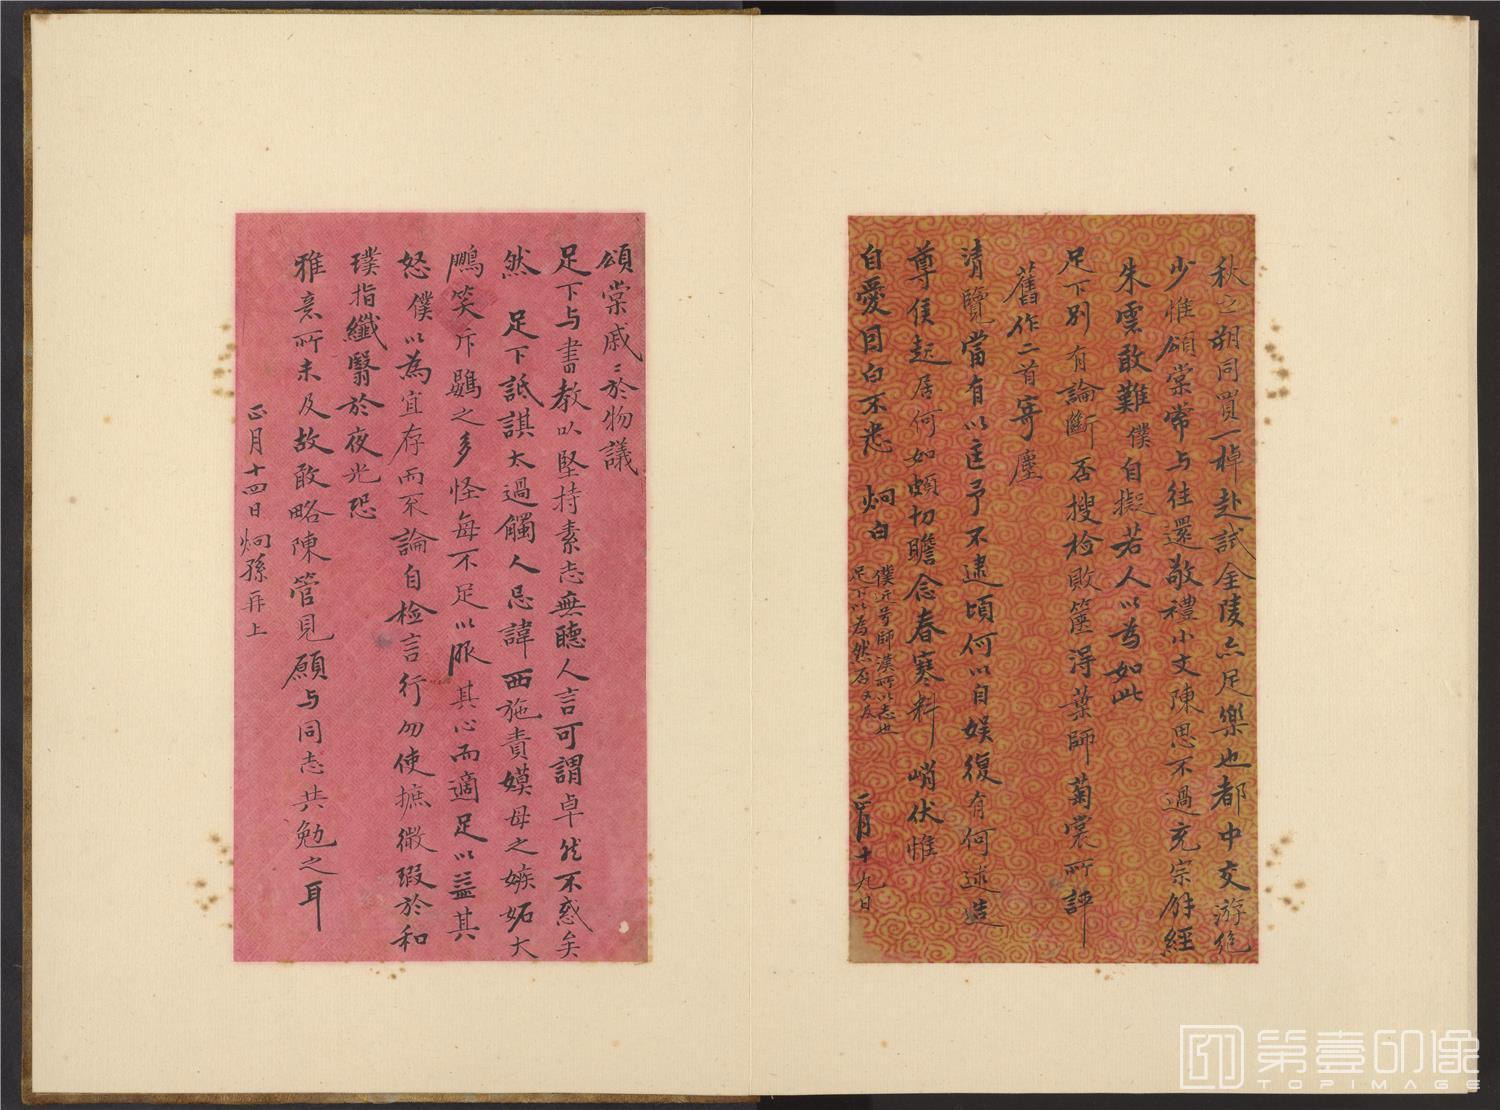 秋之朔同買一棹赴試金陵亦足樂也都中交游絶
少惟頌棠常与往還敬禮小文陳思不過充宗解經
朱雲敢難僕自擬若人以為如此
足下別有論斷否搜检敗篋得葉師菊裳所評
舊作二首寄塵
清覽當有以匡予不逮頃何以自娱復有何述造
尊侯起居何如頗切瞻念春寒料峭伏惟
自愛目白不悉 炯白
僕近号師漢所以志也
足下以為然否又及
正月十九日
頌棠戚〻於物議
足下与書教以堅持素志無聽人言可謂卓然不惑矣
然 足下詆諆太過觸人忌諱西施責嫫母之嫉妬大
鵬笑斥鷃之多怪每不足以服其心而適足以益其
怒僕以為宜存而不論自检言行勿使摭微瑕於和
璞指纖翳於夜光恐
雅意所未及故敢略陳管見願与同志共勉之耳
正月十四日炯孫再上
第壹印像
TOPIMAGE